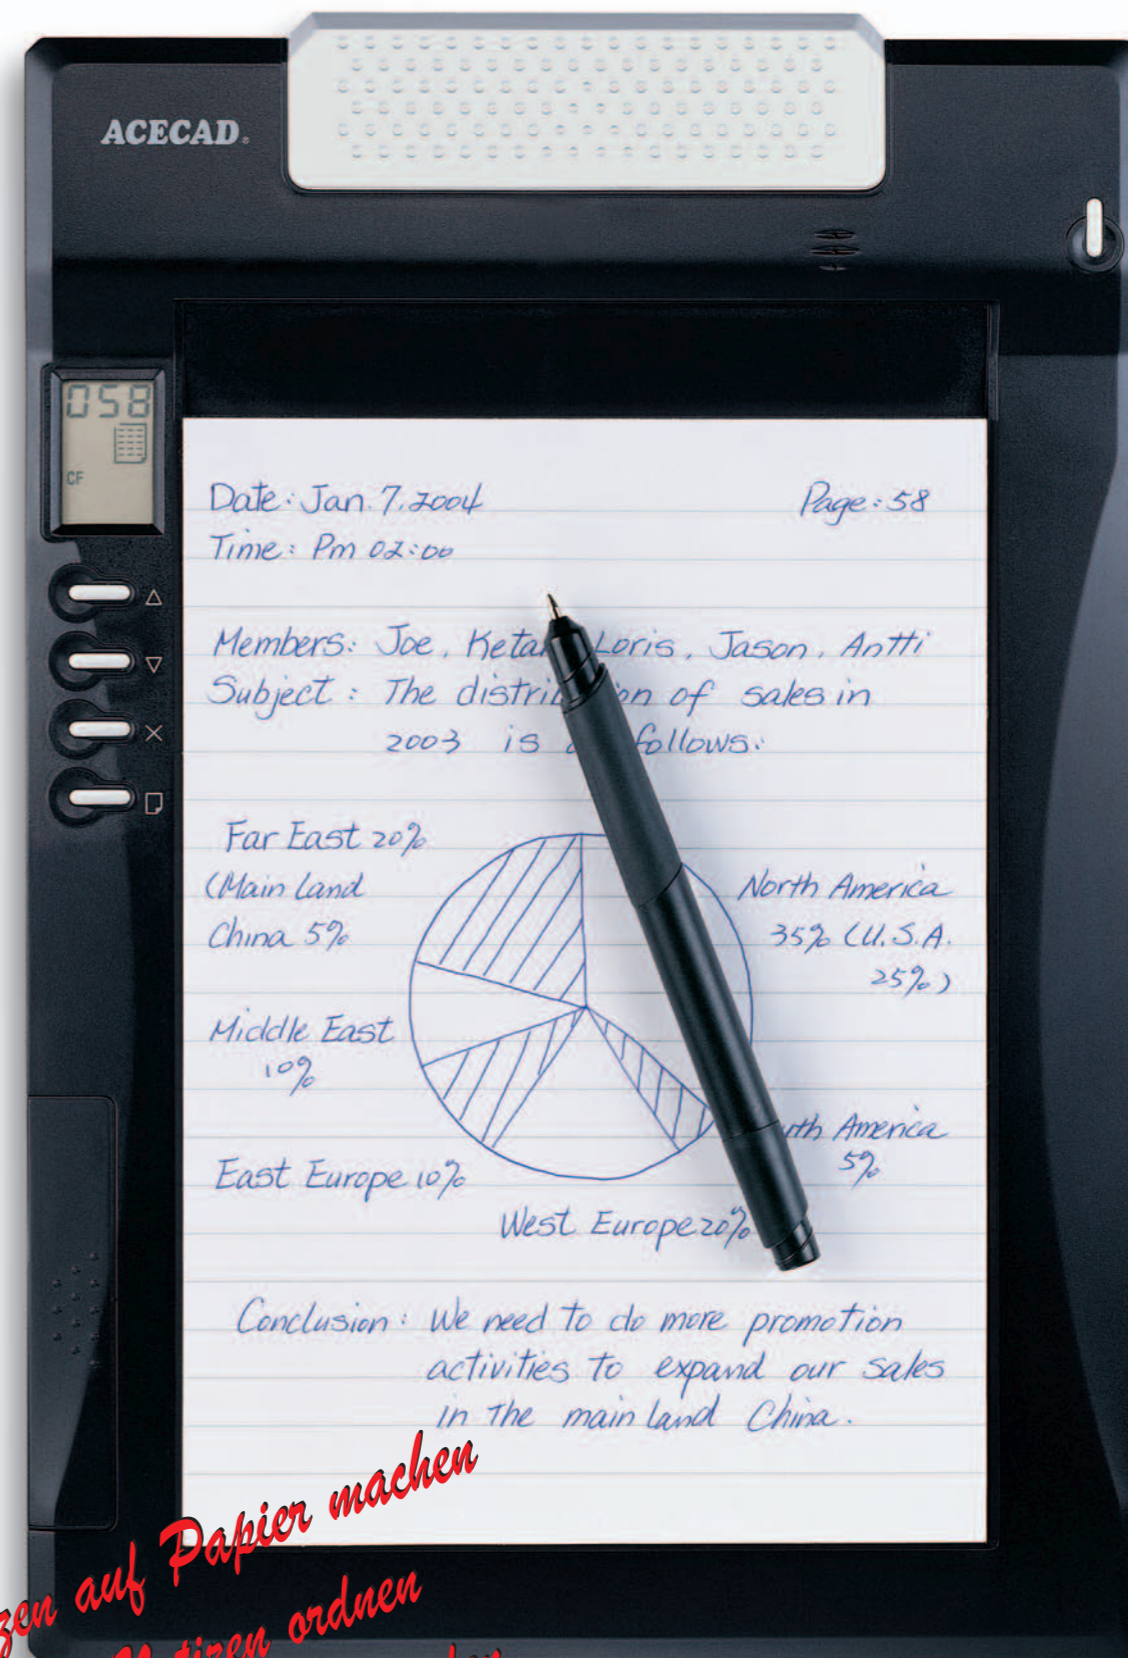 ACECAD®
058
CF
Date: Jan. 7. 2004
Page: 58
Time: Pm 02:00
Members: Joe, Loris, Jason, Antti
Subject: The of sales in
2003 is follows:
Far East 20%
(Main Land
China 5%
North America
35% (U.S.A.
25%)
Middle East
10%
America
5%
East Europe 10%
West Europe 20%
Conclusion: We need to do more promotion
activities to expand our sales
in the main land China.
auf Papier machen
ordnen